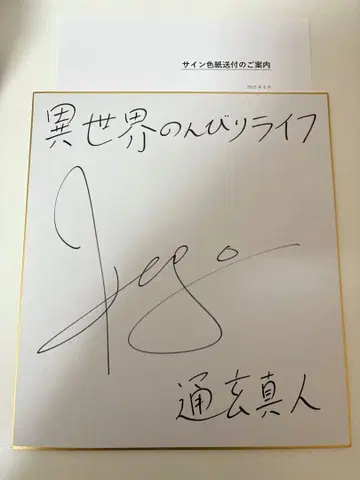 サイン色紙送付のご案内
2025年6月
異世界のんびりライフ
通玄真人